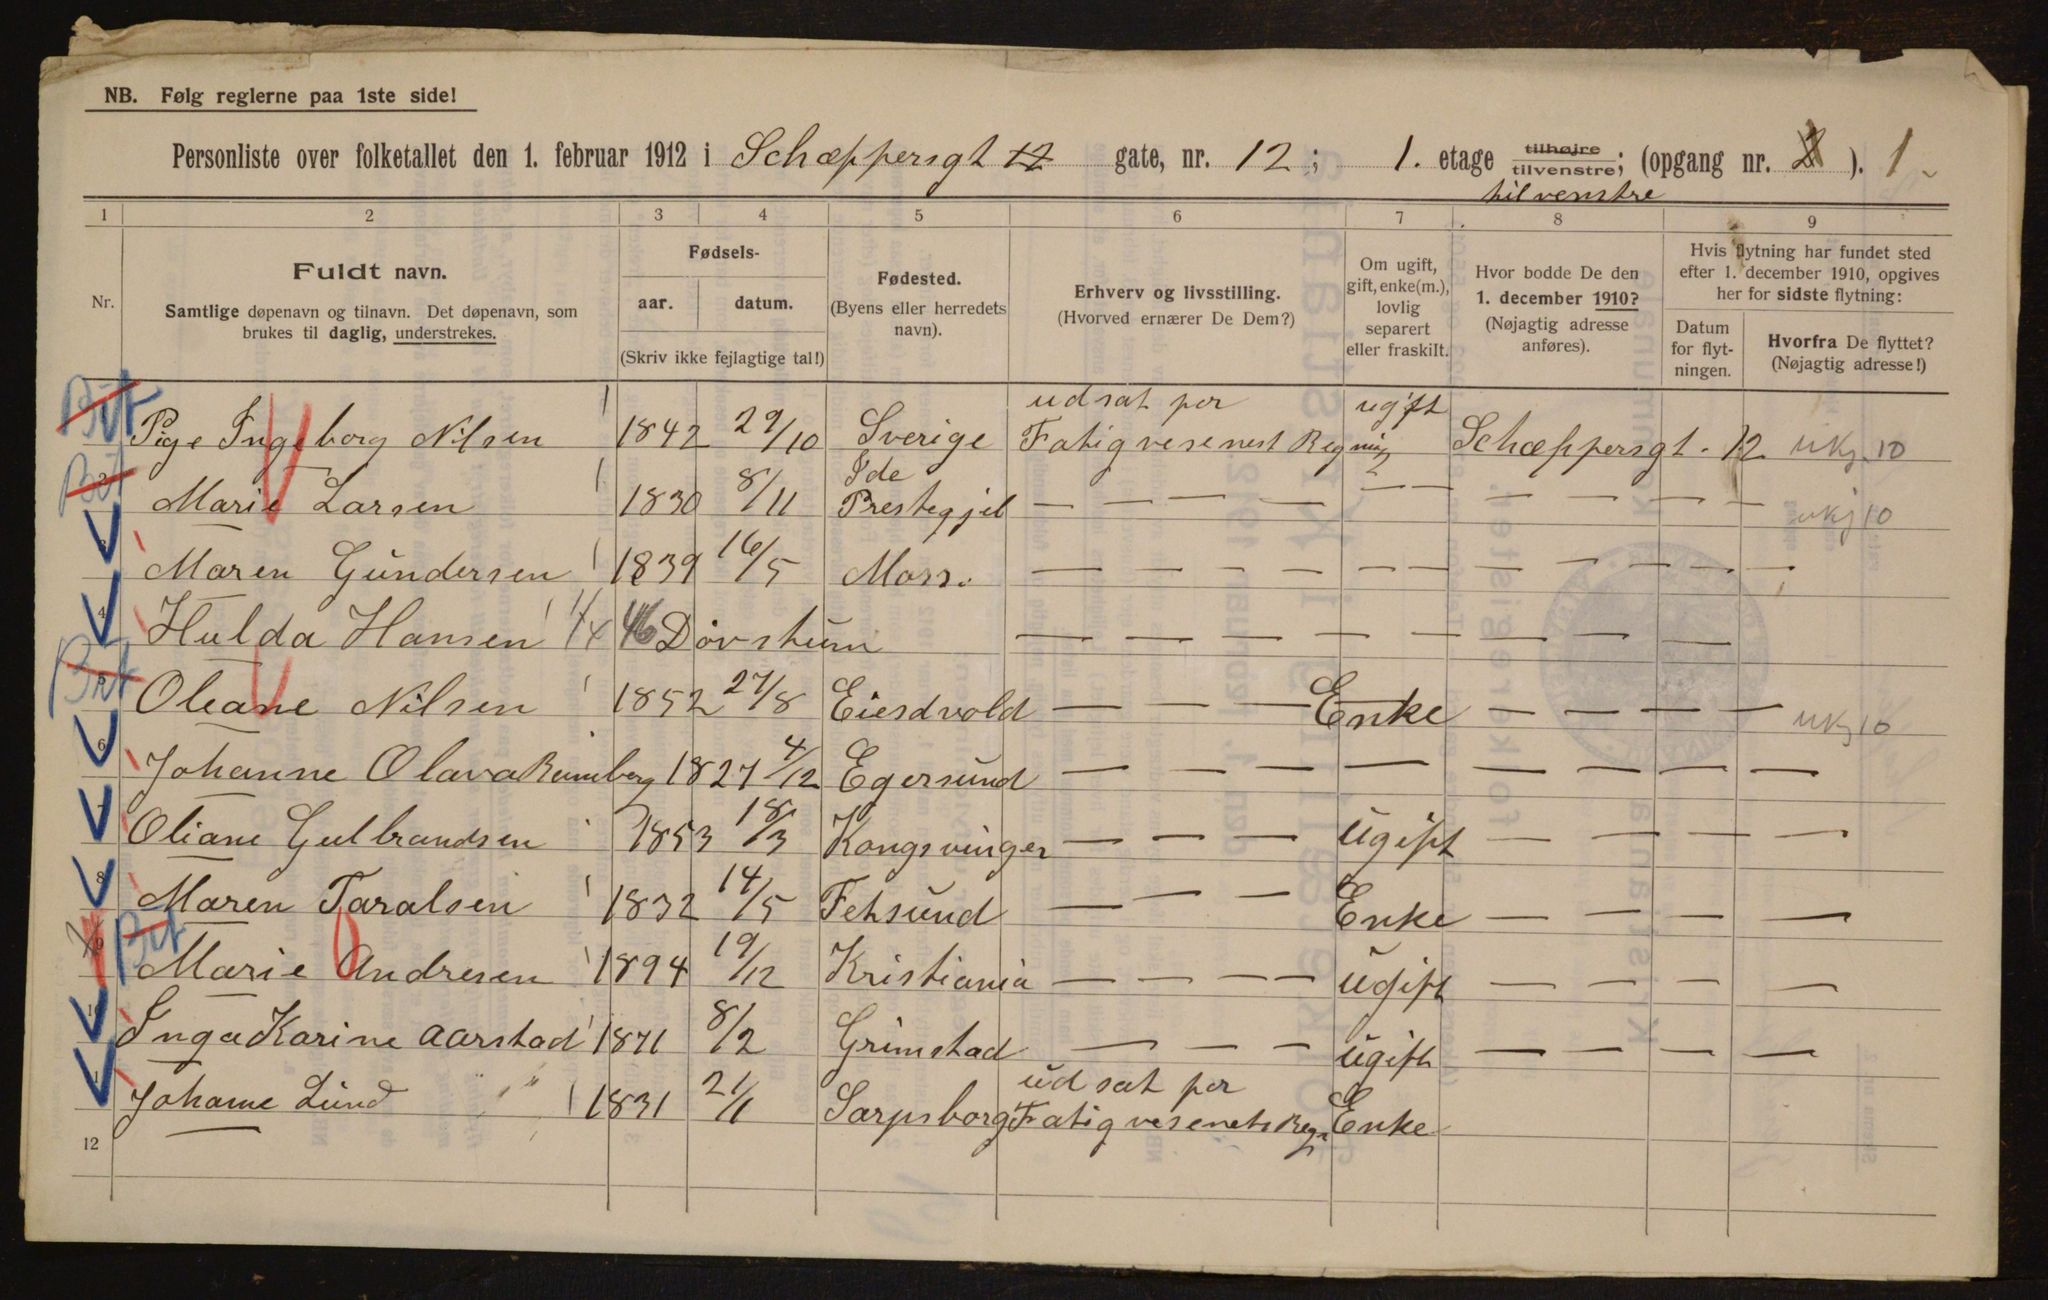 NB. Følg reglerne paa 1ste side!
Personliste over folketallet den 1. februar 1912 i Schæppersgt 12 gate, nr. 12; 1. etage tilhøjre tilvenstre; (opgang nr. 2 ). 1
til venstre
1 2 3 4 5 6 7 8 9
Nr.
Fuldt navn.
Samtlige døpenavn og tilnavn. Det døpenavn, som
brukes til daglig, understrekes.
Fødsels-
aar. datum.
(Skriv ikke fejlagtige tal!)
Fødested.
(Byens eller herredets
navn).
Erhverv og livsstilling.
(Hvorved ernærer De Dem?)
Om ugift,
gift, enke(m.),
lovlig
separert
eller fraskilt.
Hvor bodde De den
1. december 1910?
(Nøjagtig adresse
anføres).
Hvis flytning har fundet sted
efter 1. december 1910, opgives
her for sidste flytning:
Datum
for flyt-
ningen.
Hvorfra De flyttet?
(Nøjagtig adresse!)
udsat per ugift
Pige Ingeborg Nilsen 1842 29/10 Sverige Fatigvesenest Regning Schæppersgt. 12 ukj 10
Ide
2 Marie Larsen 1830 8/11 Prestegjel — — — — — — — — — — — ukj 10
3 Maren Gundersen 1839 16/5 Moss. — — — — — — — — — — — —
4 Hulda Hansen 1/4 46 Døvstum — — — — — — — — — — —
5 Oleane Nilsen 1852 27/8 Eiesdvold — — — Enke — — — — ukj 10
6 Johanne Olava Rumberg 1827 4/12 Egersund — — — — — — — —
7 Oliane Gulbrandsen 1853 18/3 Kongsvinger — — — ugift — — — —
8 Maren Taralsen 1832 14/5 Fetsund — — — Enke — — — —
9 Marie Andresen 1894 19/12 Kristiania — — — — ugift — — — —
Inga Karine Aarstad 1871 8/2 Grimstad — — — ugift — — — —
udsat per
Johanne Lund " " 1831 21/1 Sarpsborg Fatigvesenets Reg. Enke
12